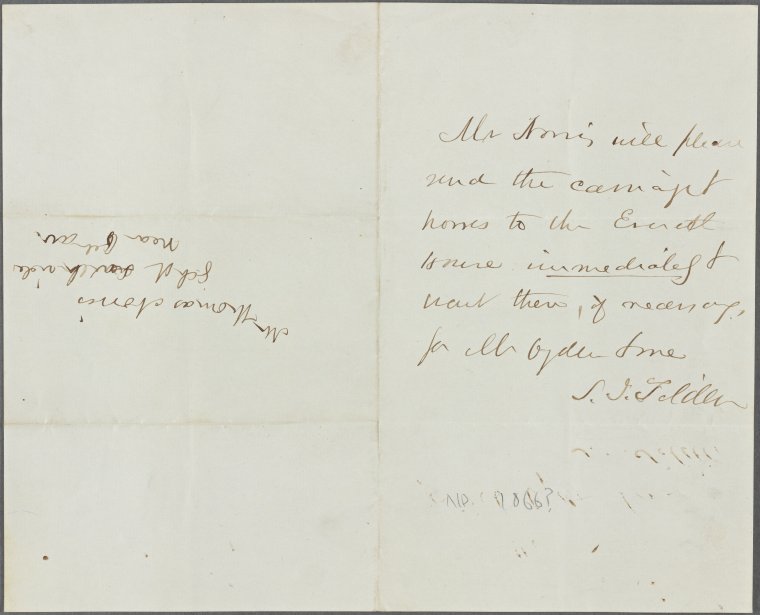 Mr Norris will please
send the carriage &
horses to the Everett
House immediately &
wait there, if necessary,
for Mr Ogden & me
S. J. Tilden
N.D. [1866?
Mr Thomas Norris
St south side
near 6th av